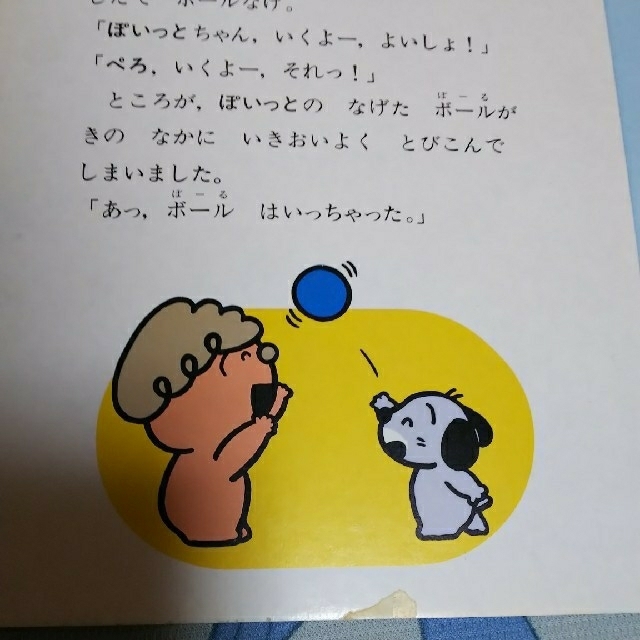 ボールなげ。
「ぽいっとちゃん，いくよー，よいしょ！」
「ぺろ，いくよー，それっ！」
ぼーる
ところが，ぽいっとの　なげた　ボールが
きの　なかに　いきおいよく　とびこんで
しまいました。
ぼーる
「あっ，ボール　はいっちゃった。」